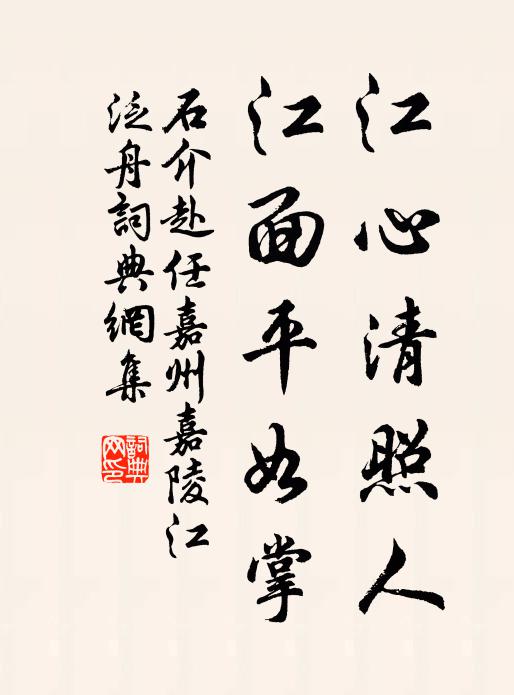 江心清照人
江面平如掌
石介赴任嘉州嘉陵江
泛舟詞典網集
詞典网印